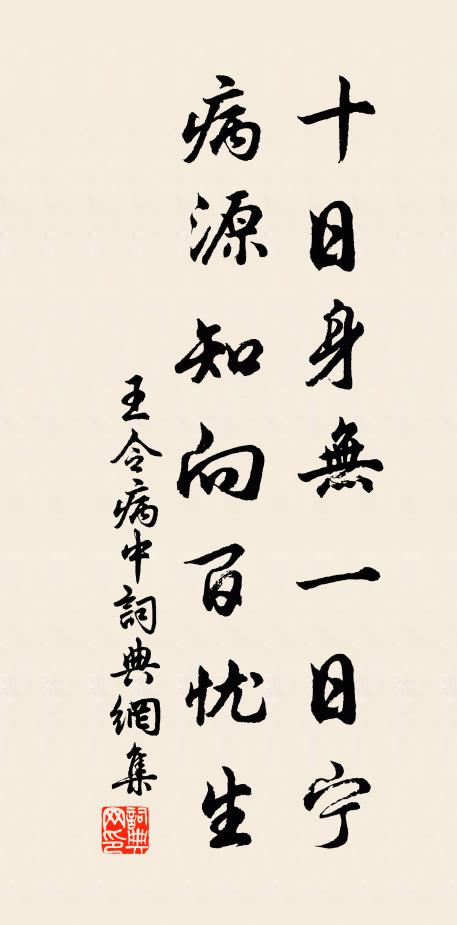 十日身無一日宁
病源知向百忧生
王令病中詞典網集
詞典網印